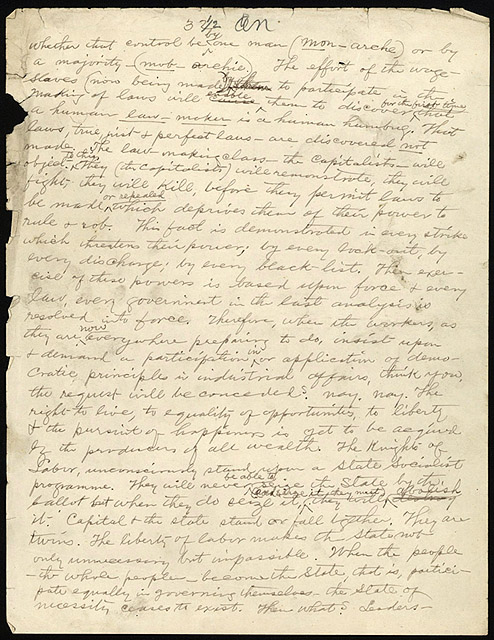 3 7/2 An.
whether that control be by one man (mon-archie) or by
a majority (mob-archie). The effort of the wage-
slaves (now being made) to participate in the
making of laws will enable them to discover for the first time that
a human law-maker is a human humbug. That
laws, true, just & perfect laws - are discovered not
made. The law-making class - the capitalists - will
object to this. They (the capitalists) will remonstrate, they will
fight, they will kill, before they permit laws to
be made, or repealed which deprives them of their power to
rule & rob. This fact is demonstrated in every strike
which threatens their power; by every lock-out, by
every discharge; by every black-list. Their exer-
cise of these powers is based upon force & every
law, every government in the last analysis is
resolved into force. Therefore, when the workers, as
they are now everywhere preparing to do, insist upon
& demand a participation in or application of demo-
cratic principles in industrial affairs, think you
the request will be conceded? nay, nay. The
right to live, to equality of opportunities, to liberty
& the pursuit of happiness is yet to be acquired
by the producers of all wealth. The Knights of
Labor, unconsciously stand upon a State Socialist
programme. They will never be able to seize the State by the
ballot but when they do seize it, (and seize it they must) they will abolish
it. Capital & the state stand or fall together. They are
twins. The liberty of labor makes the State not
only unnecessary, but impossible. When the people
- the whole people - become the State, that is, partici-
pate equally in governing themselves - the State of
necessity ceases to exist. Then what? Leaders-